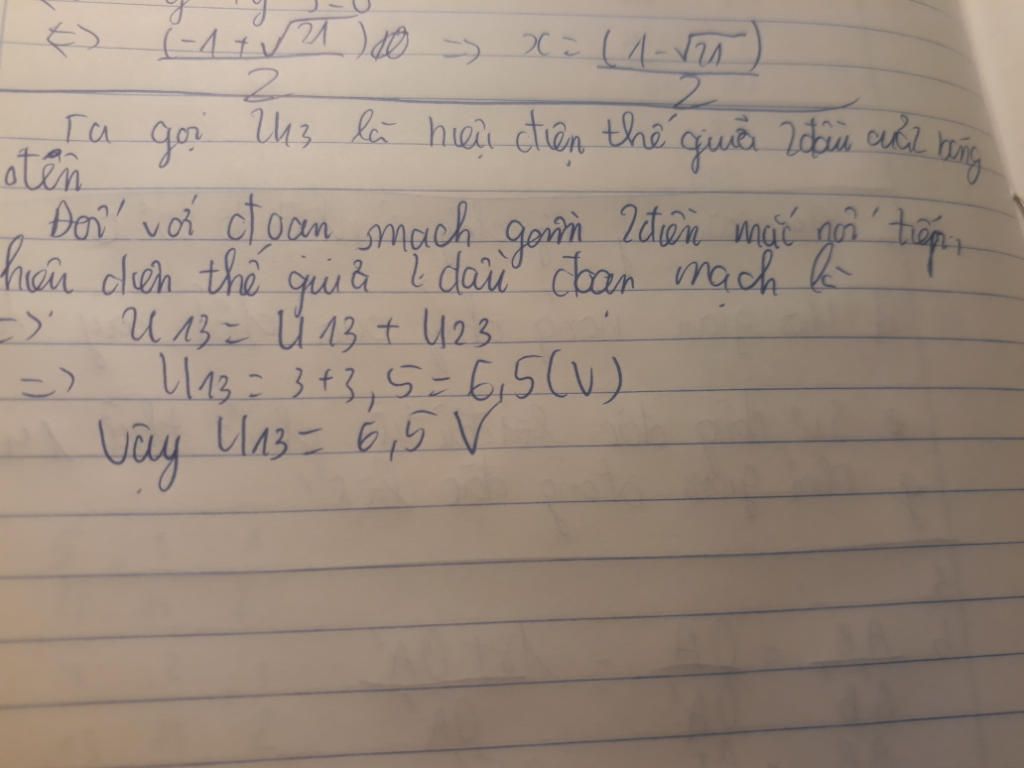 <=> (-1+√21) / 2 => x = (1-√21) / 2
Ta gọi U13 là hiệu điện thế giữa 2 đầu bóng
đền
Đối với đoan mạch gồm 2 đèn mắc nối tiếp,
hiệu diện thế giữa 2 đầu đoan mạch là
=> U13 = U13 + U23
=> U13 = 3 + 3,5 = 6,5 (V)
Vậy U13 = 6,5 V